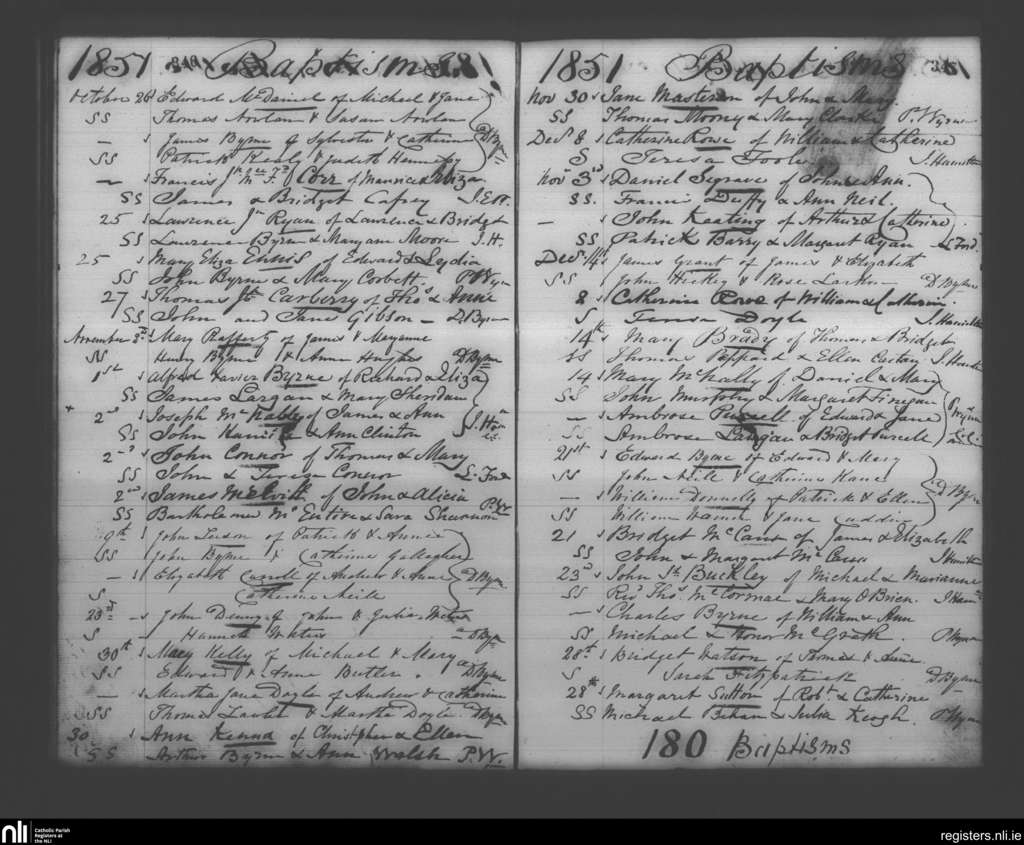 1851 Baptisms 1851
October 26 s Edward McDaniel of Michael & Jane
SS Thomas Nowlan & Susan Nowlan
— s James Byrne of Sylvester & Catherine D Byrne
SS Patrick Kealy & Judith Hennessy
— Francis Corr of Maurice & Eliza
SS James & Bridget Cafrey
25 s Lawrence Jn Ryan of Lawrence & Bridget
SS Lawrence Byrne & Maryann Moore J. H.
25 s Mary Eliza Ennis of Edward & Lydia
SS John Byrne & Mary Corbett
27 s Thomas Jh Carberry of Thos & Annie
SS John and Jane Gibson — D. Byrne
November s Mary Rafferty of James & Maryanne
SS Henry Byrne & Anne Hughes D Byrne
1st s Alfred Xavier Byrne of Richard & Eliza
SS James Largan & Mary Sheridan
2nd s Joseph McNally of James & Ann
SS John & Ann Clinton
2nd s John Connor of Thomas & Mary
SS John & Teresa Connor
2nd s James of John & Alicia
SS Bartholomew McEntire & Sara Shannon
9th s John of Patrick & Annie
SS John Byrne & Catherine Gallagher
— s Elizabeth Carroll of Andrew & Anne D. Byrne
S Catherine Neille
23rd s John of John & Julia
S — Hannah Waters
30th s Mary Kelly of Michael & Mary
SS Edward & Anne Butler. D Byrne
— s Martha Jane Doyle of Andrew & Catherine
SS Thomas & Martha Doyle D Byrne
30 s Ann Kenna of Christopher & Ellen
SS Arthur Byrne & Ann Walsh P.W.
1851 Baptisms 1851
Nov 30 s Jane Masterson of John & Mary.
SS Thomas Mooney & Mary Clarke
Decr 8 s Catherine Rowe of William & Catherine
S Teresa Toole J. Hamilton
Novr 3rd s Daniel Segrave of John & Ann.
SS. Francis Duffy & Ann Neil.
— s John Keating of Arthur & Catherine
SS Patrick Barry & Margaret Ryan
Decr 14 s James Grant of James & Elizabeth
SS John Hickey & Rose Larkin D Byrne
8 s Catherine Rowe of William & Catherine.
S Teresa Doyle J. Hamilton
14th s Mary Brady of Thomas & Bridget
SS Thomas Peppard & Ellen
14 s Mary McNally of Daniel & Mary
SS John Murphy & Margaret Finegan
— s Ambrose Pursell of Edward & Jane
SS Ambrose Langan & Bridget Pursell
21st s Edward Byrne of Edward & Mary
SS John Neill & Catherine Kane
— s William Donnolly of Patrick & Ellen D Byrne
SS William & Jane
21 s Bridget McCann of James & Elizabeth
SS John & Margaret McCann J Hamilton
23rd s John Jh Buckley of Michael & Marianne
SS Revd Thos McCormac & Mary O Brien.
— s Charles Byrne of William & Ann
SS Michael & Honor McGrath.
28th s Bridget Watson of Thomas & Anne
S Sarah Fitzpatrick D Byrne
28th s Margaret Sutton of Robt & Catherine
SS Michael Behan & Julia Keogh.
180 Baptisms
nli Catholic Parish Registers at the NLI
registers.nli.ie